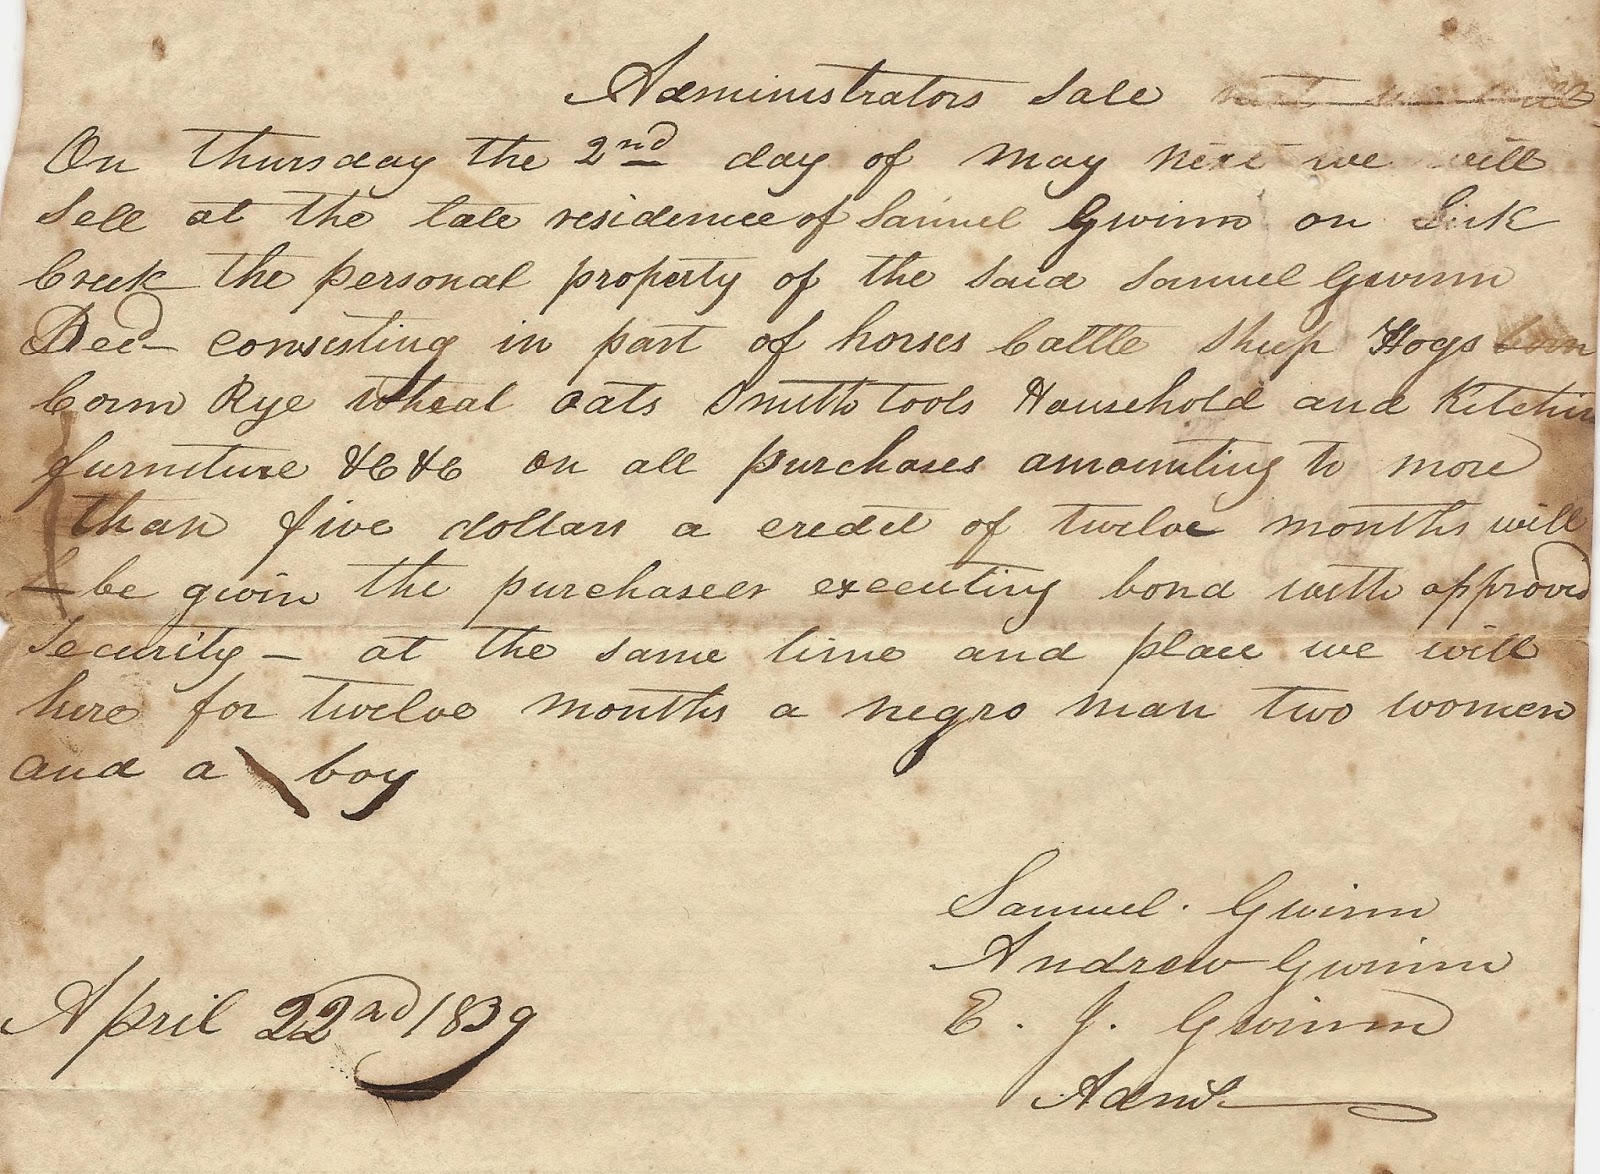 Administrators Sale
On thursday the 2nd day of may next we will
Sell at the late residence of Samuel Gwinn on Lick
Creek the personal property of the said Samuel Gwinn
Decd consisting in part of horses Cattle Sheep Hogs Corn
Corn Rye wheat oats Smith tools Household and Kitchin
furniture &C &C on all purchases amounting to more
than five dollars a credit of twelve months will
be givin the purchaseer executing bond with approved
security – at the same time and place we will
hire for twelve months a negro man two women
and a boy
Samuel. Gwinn
Andrew Gwinn
E. J. Gwinn
April 22nd 1839
Admr